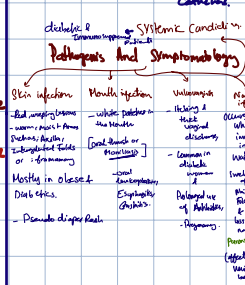 diabetic &
Immunosuppressive
Patients
Systemic Candidi
Pathogenesis And Symptomatology
Skin infection
- Red, weeping lesions
- warm, moist Areas
Such as, Axilla,
Intergluteal Folds
or inframammary
Mostly in obese &
Diabetics.
- Pseudo diaper Rash
Mouth infection
- white Patches in
the Mouth
[oral thrush or
Moniliasis]
- oral
Leukoplakia,
Esophagitis,
Gastritis.
Vulvovaginitis
- Itching &
thick
vaginal
discharge,
- Common in
diabetic
women
&
Prolonged use
of Antibiotics,
- Pregnancy.